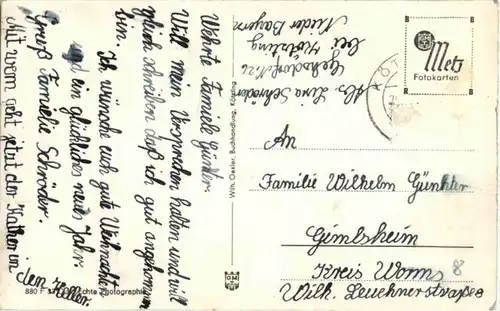 Wehrte Familie Günter.
Will mein Versprechen halten und will
gleich schreiben daß ich gut angekommen
bin.
Ich wünsche euch gute Weihnachten
und ein glückliches neues Jahr.
Gruß Familie Schröder.
Mit wem geht jetzt den Kathen in
den Keller.
Abs. Lina Schröder
Gehsdorf Nr. 26
bei Kötzting
Nieder Bayern
Wilh. Oexler, Buchhandlung, Kötzting
Metz
Fotokarten
B B
R R
KÖT
An
Familie Wilhelm Günther
Gimbsheim
Kreis Worms 8
Wilh. Leuchnerstraße 8
880 F Echte Photographie